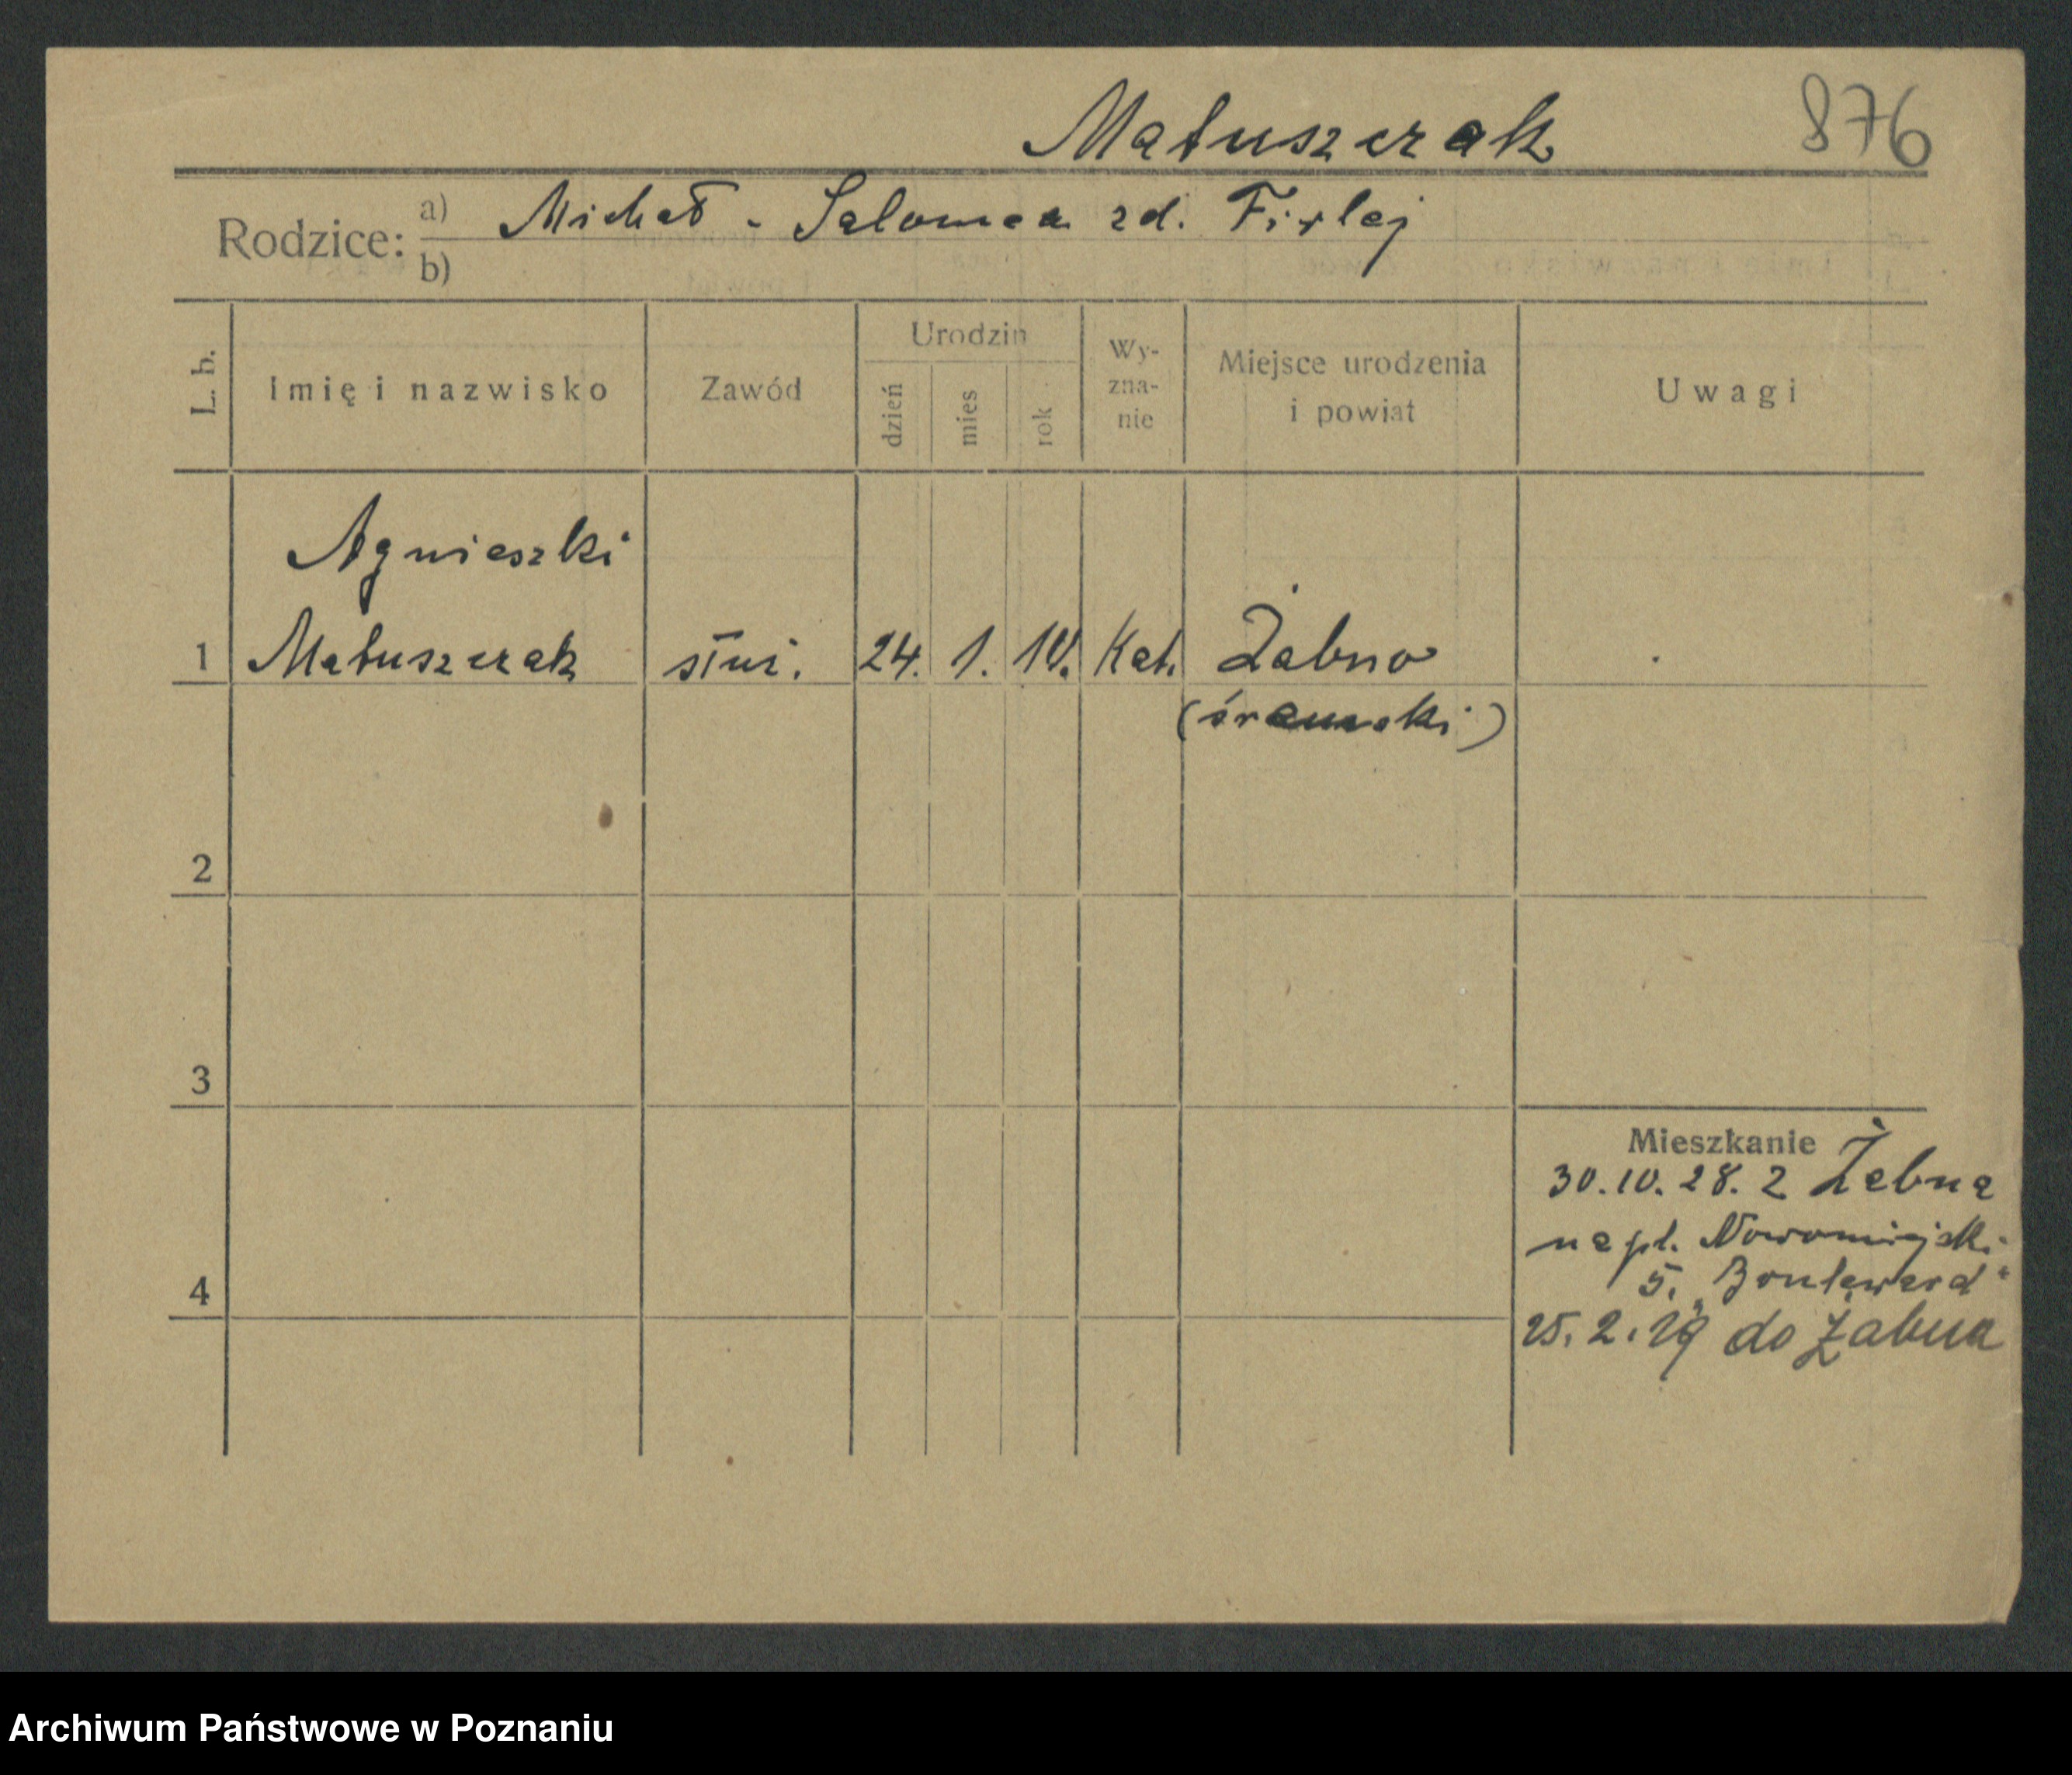 Matuszczak 876
Rodzice: a) Michał - Salomea zd. Firlej
b)
L. b. Imię i nazwisko Zawód Urodzin dzień mies rok Wy-
zna-
nie Miejsce urodzenia
i powiat Uwagi
Agnieszki
1 Matuszczak służ. 24. 1. 10. Kat. Żabno
(śremski)
2
3
Mieszkanie
30.10.28. z Żabna
na pl. Nowomiejski
5. „Boulevard"
4
25.2.29 do Żabna
Archiwum Państwowe w Poznaniu